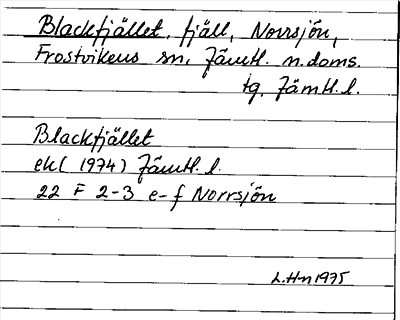 Blackfjället, fjäll, Norrsjön,
Frostvikens sn, Jämtl. n. doms.
tg, Jämtl. l.
Blackfjället
ek (1974) Jämtl. l.
22 F 2-3 e-f Norrsjön
L.Hn 1975